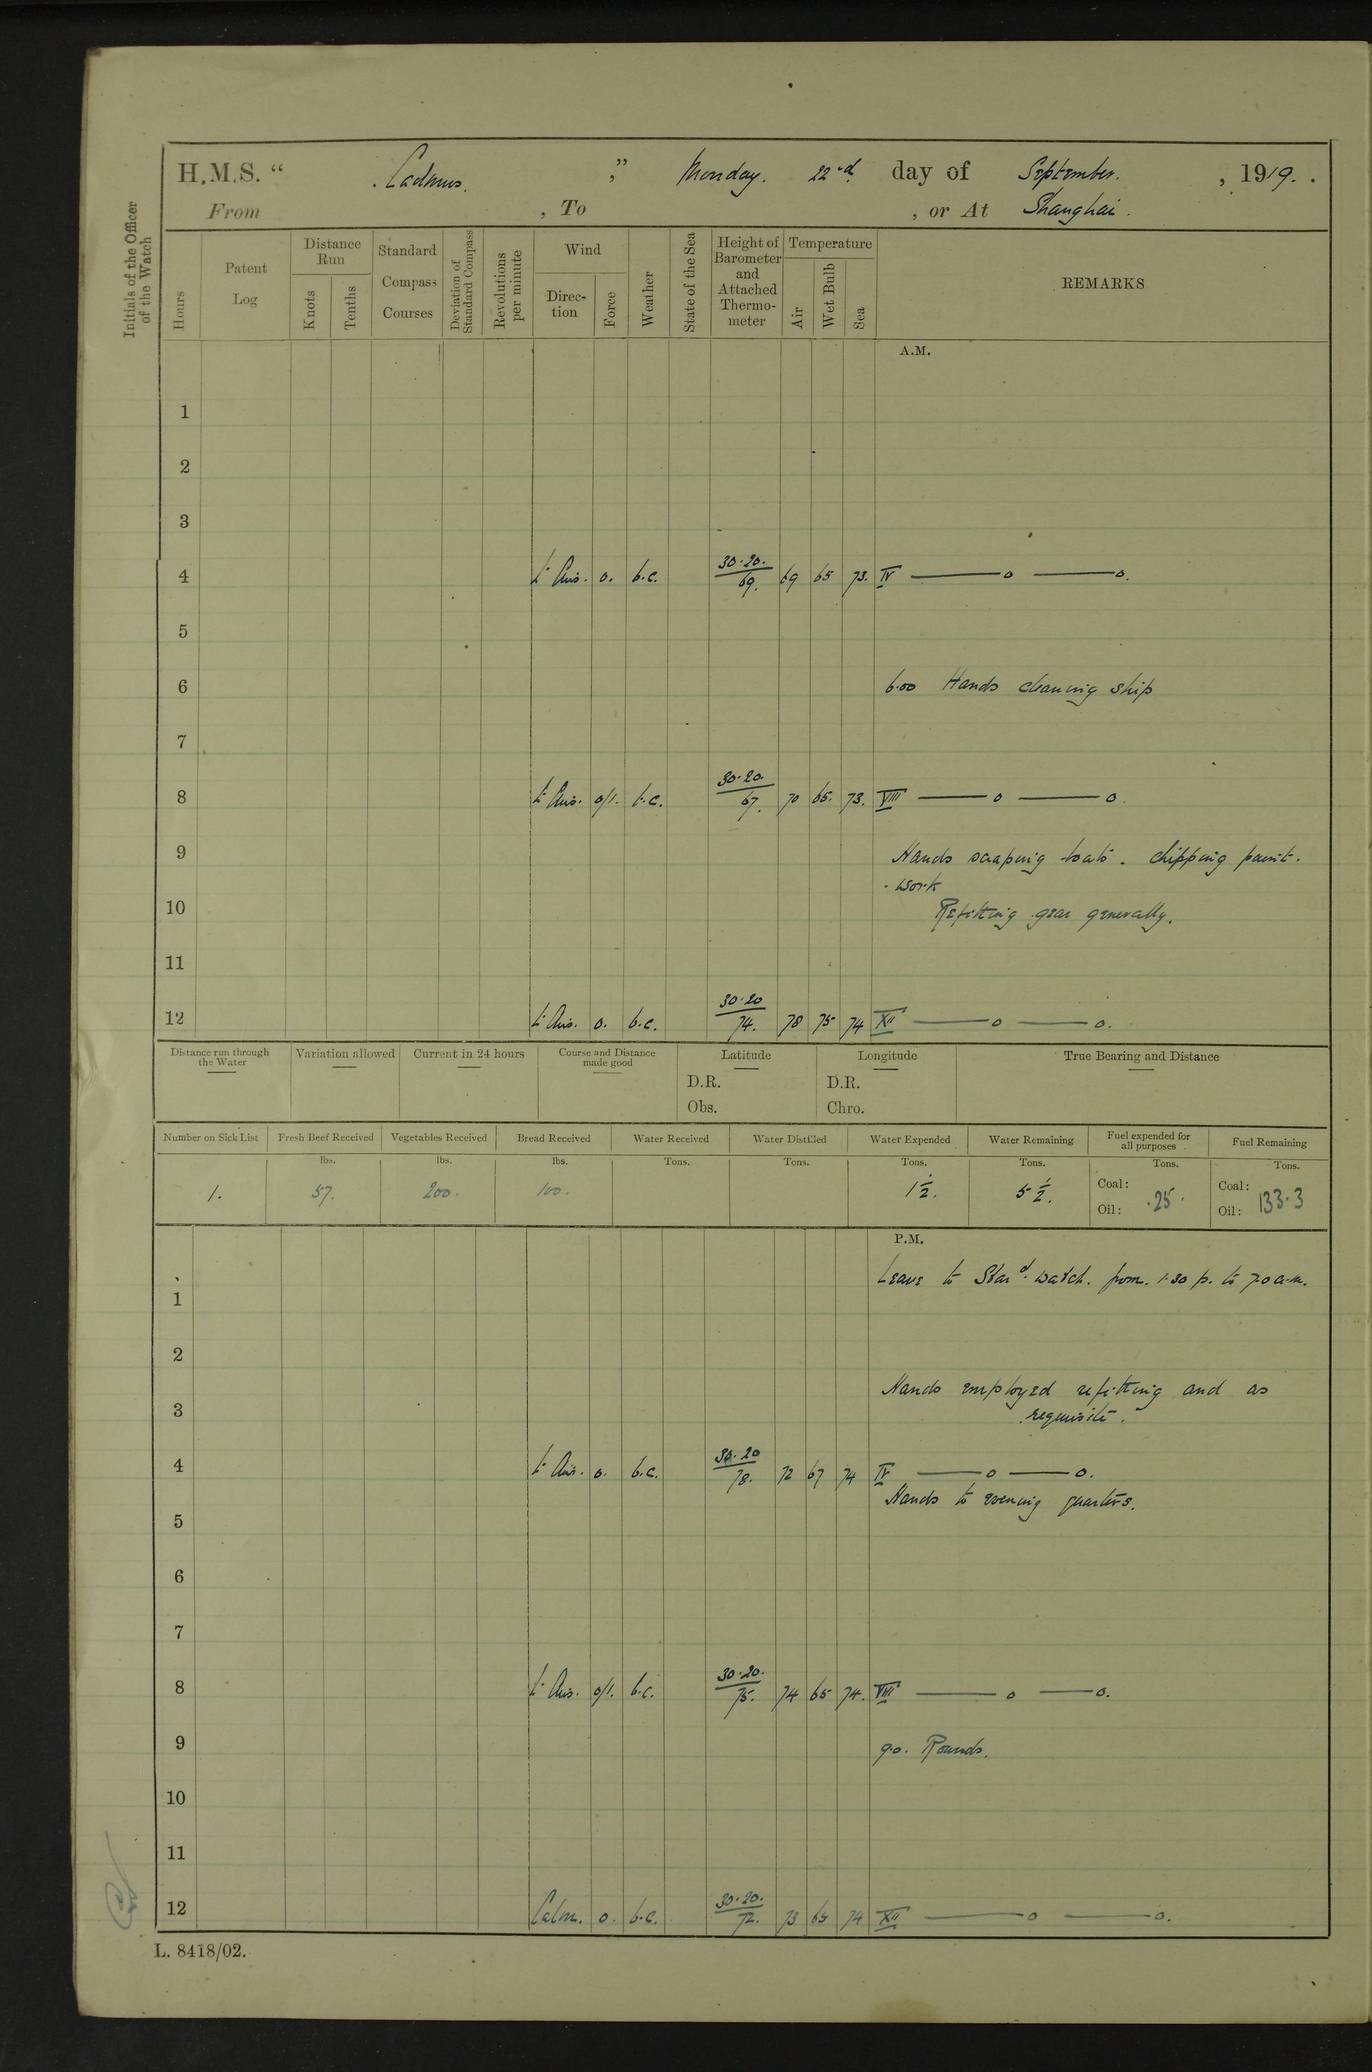 H.M.S. " Cadmus. ," Monday. 22nd. day of September. , 1919. .
From , To , or At Shanghai.
Initials of the Officer of the Watch
Hours
Patent Log
Distance Run
Knots
Tenths
Standard Compass Courses
Deviation of Standard Compass
Revolutions per minute
Wind
Direction
Force
Weather
State of the Sea
Height of Barometer and Attached Thermometer
Temperature
Air
Wet Bulb
Sea
REMARKS
A.M.
1
2
3
4 Lt Airs. 0. b.c. 30.20. 69. 69 65 73. IV —— o —— o.
5
6 6.00 Hands cleaning ship
7
8 Lt Airs. 0/1. b.c. 30.20. 67. 70 65. 73. VIII —— o —— o.
9 Hands scraping boats. chipping paint-
-work
10 Refitting gear generally.
11
12 Lt Airs. 0. b.c. 30.20 74. 78 75 74 XII —— o —— o.
Distance run through the Water
Variation allowed
Current in 24 hours
Course and Distance made good
Latitude
D.R.
Obs.
Longitude
D.R.
Chro.
True Bearing and Distance
Number on Sick List Fresh Beef Received Vegetables Received Bread Received Water Received Water Distilled Water Expended Water Remaining Fuel expended for all purposes Fuel Remaining
lbs. lbs. lbs. Tons. Tons. Tons. Tons. Tons. Tons.
1. 57. 200. 100. 1 1/2. 5 1/2. Coal: Oil: .25. Coal: Oil: 133.3
P.M.
Leave to Stard. watch. from. 1.30 p. to 7.0 a.m.
1
2
Hands employed refitting and as
3 requisite.
4 Lt Airs. 0. b.c. 30.20 78. 72 67 74 IV —— o —— o.
Hands to evening quarters.
5
6
7
8 Lt Airs. 0/1. b.c. 30.20. 75. 74 65 74. VIII —— o —— o.
9 9.0. Rounds.
10
11
12 Calm. 0. b.c. 30.20. 72. 73 65 74 XII —— o —— o.
L. 8418/02.